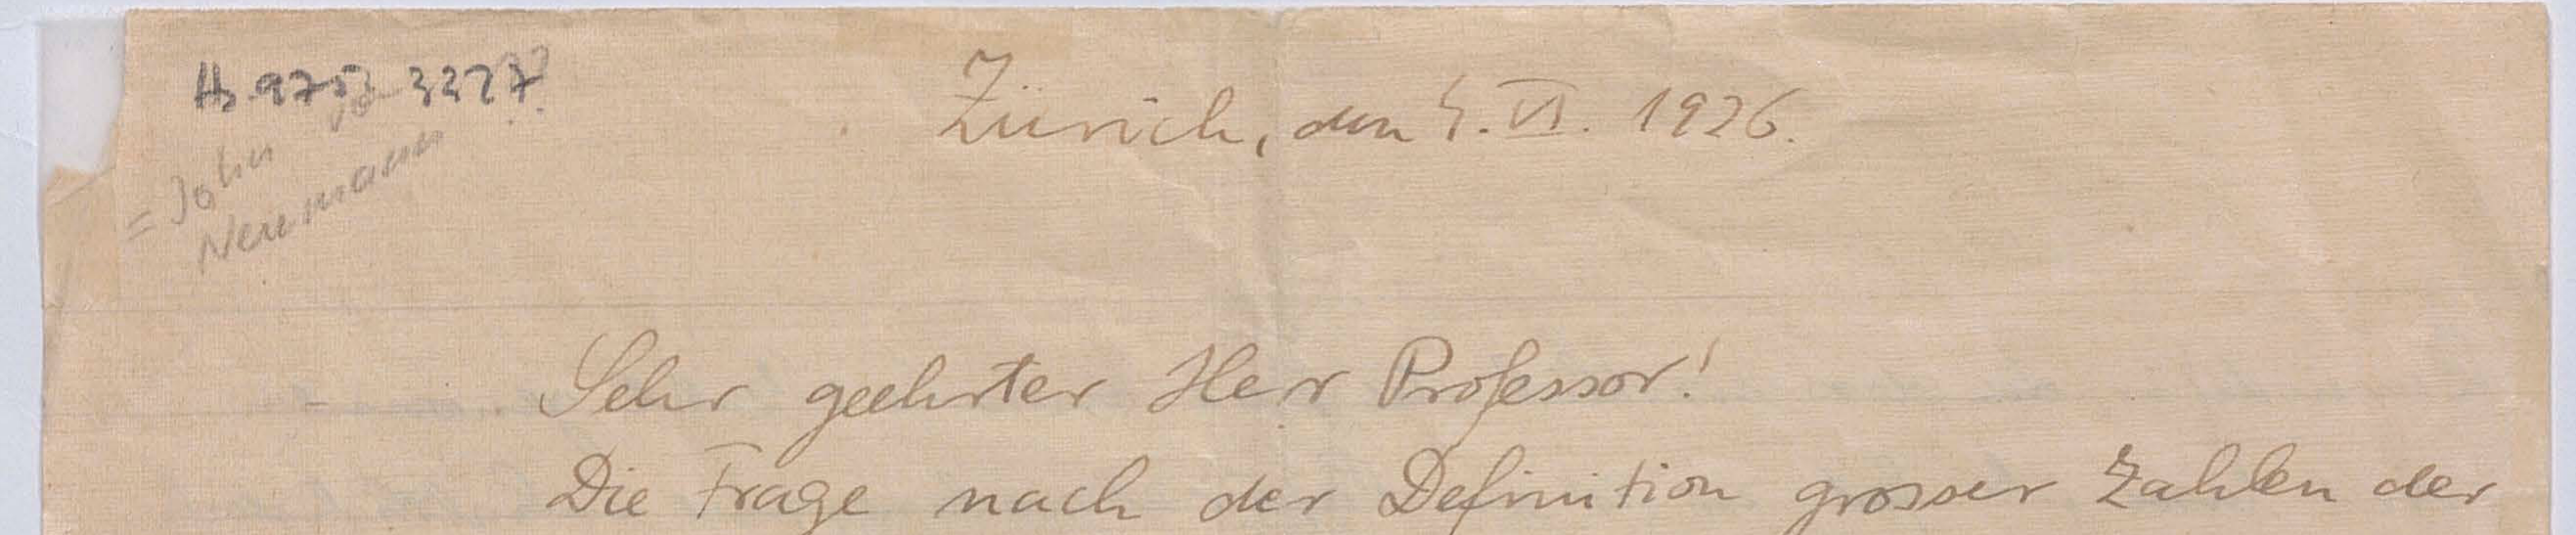 Hs 975 3227
= John v.
Neumann
Zürich, den 4. VI. 1926.
Sehr geehrter Herr Professor!
Die Frage nach der Definition grosser Zahlen der